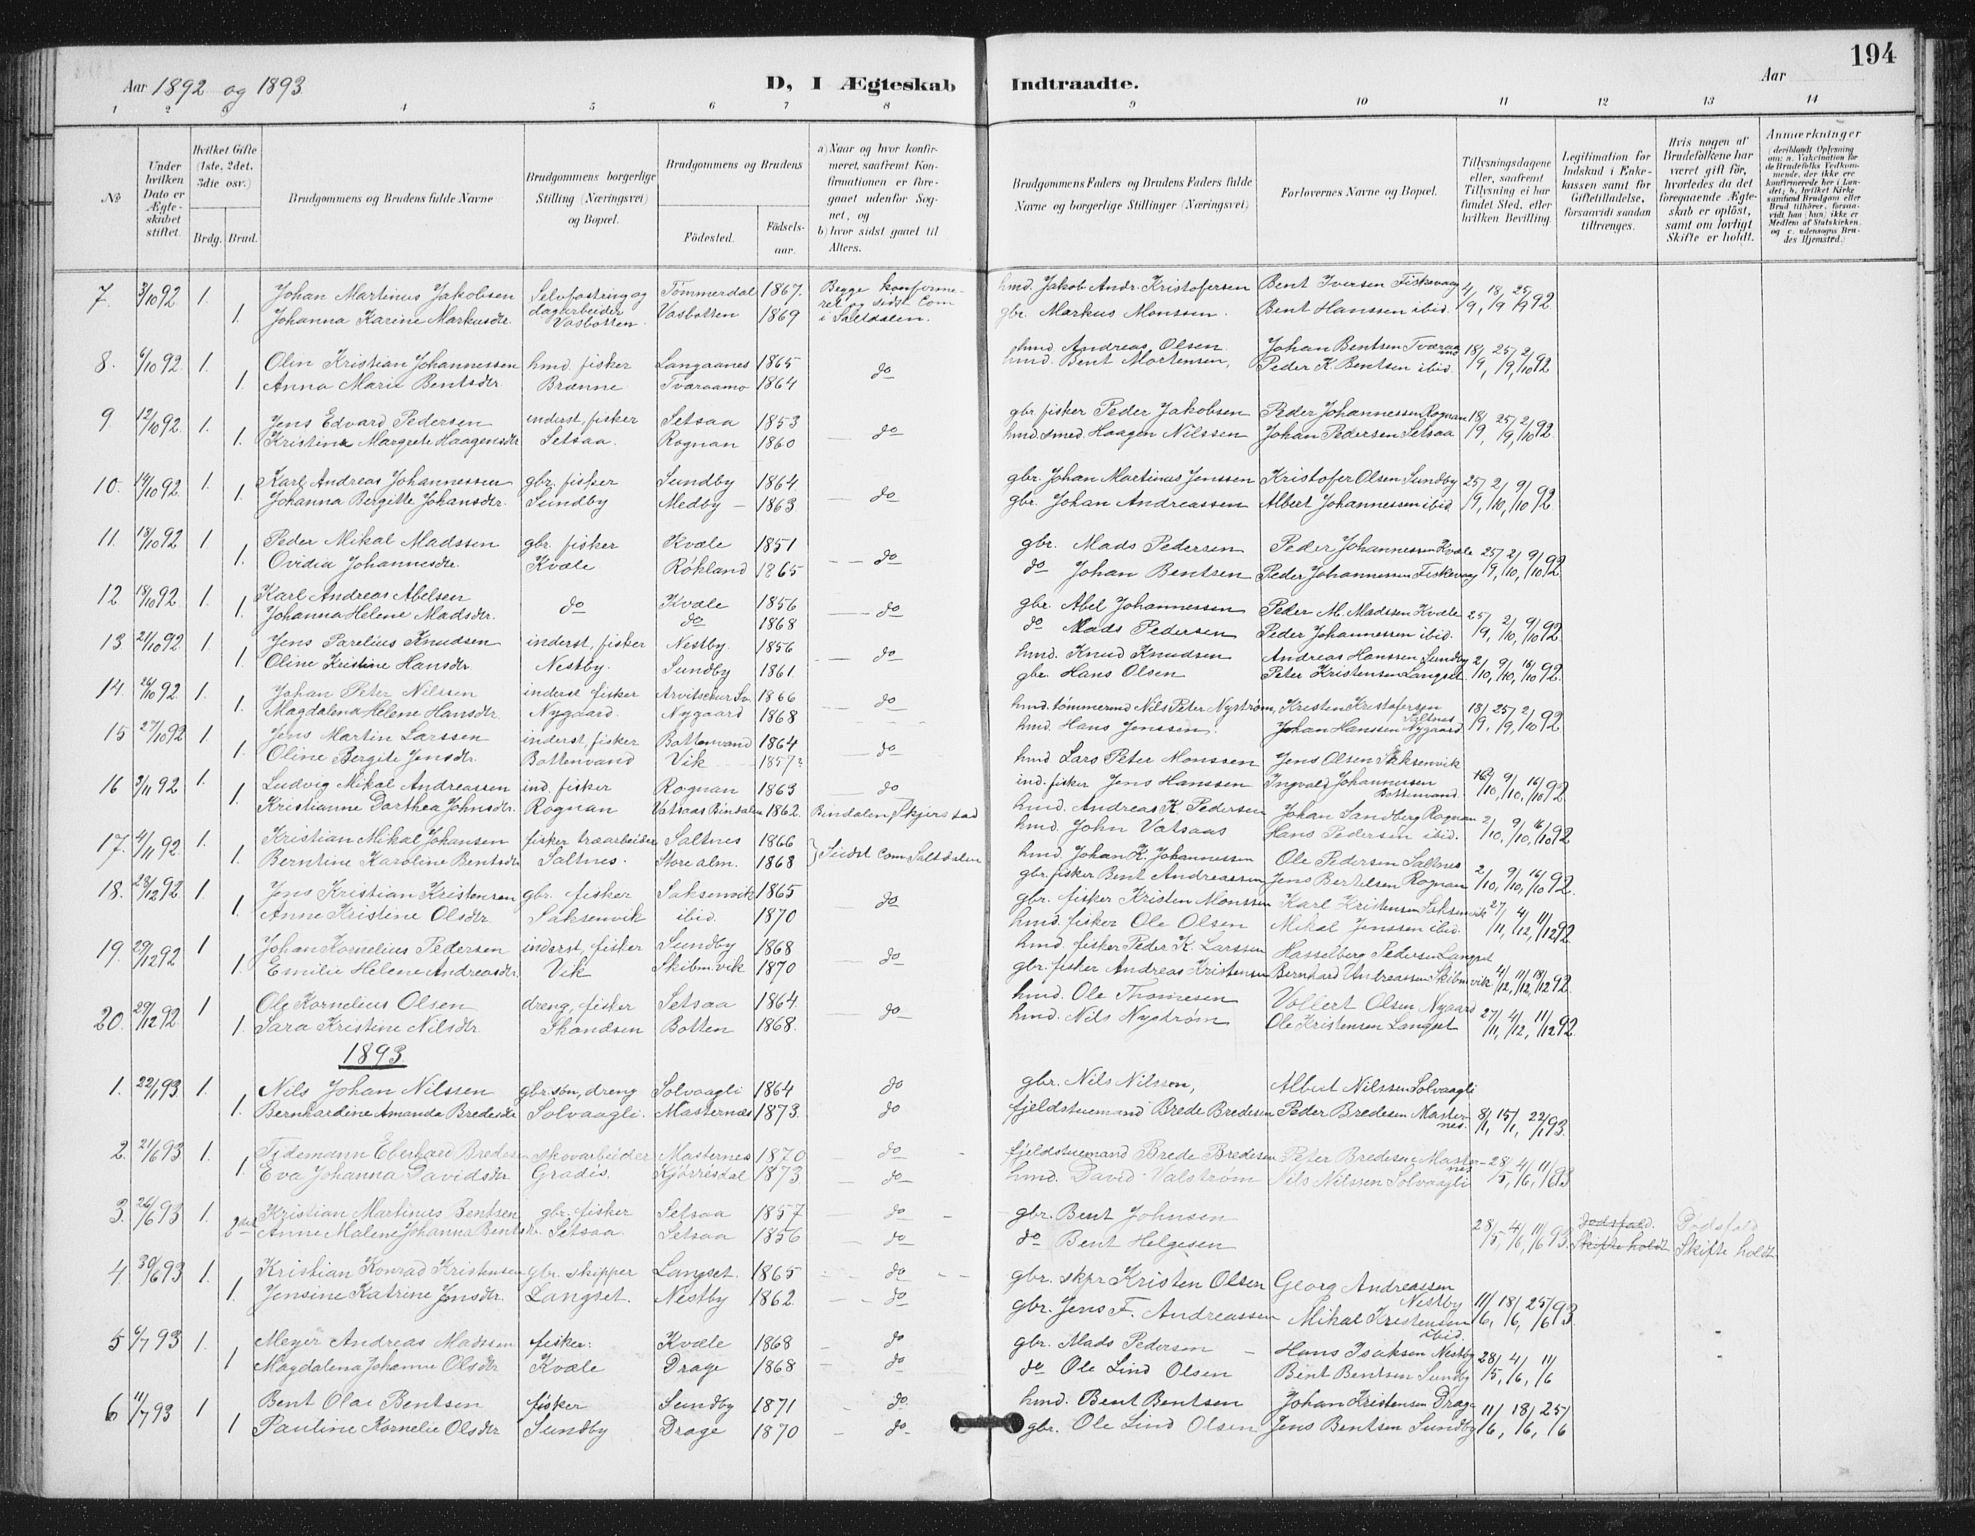 194
Aar 1892 og 1893
D, I Ægteskab Indtraadte.
Aar
1 2 3 4 5 6 7 8 9 10 11 12 13 14
No
Under hvilken Dato er Ægteskabet stiftet.
Hvilket Gifte (1ste, 2det, 3die osv.)
Brdg. Brud.
Brudgommens og Brudens fulde Navne
Brudgommens borgerlige Stilling (Næringsvei) og Bopæl.
Brudgommens og Brudens
Fødested.
Fødselsaar.
a) Naar og hvor konfirmeret, saafremt Konfirmationen er foregaaet udenfor Sognet, og
b) hvor sidst gaaet til Alters.
Brudgommens Faders og Brudens Faders fulde Navne og borgerlige Stillinger (Næringsvei)
Forlovernes Navne og Bopæl.
Tillysningsdagene eller, saafremt Tillysning ei har fundet Sted, efter hvilken Bevilling.
Legitimation for Indskud i Enkekassen samt for Giftetilladelse, forsaavidt saadan tiltrænges.
Hvis nogen af Brudefolkene har været gift før, hvorledes da det foregaaende Ægteskab er opløst, samt om lovligt Skifte er holdt.
Anmerkninger (deriblandt Oplysning om: a. Vakcination for de Brudefolks Vedkommende, der ikke ere konfirmerede her i Landet; b. hvilket Kirkesamfund Brudgom eller Brud tilhører, forsaavidt han (hun) ikke er Medlem af Statskirken, og c. udensogns Brudes Hjemsted.)
7. 3/10 92 1. Johan Martinus Jakobsen Selvfostring og Tømmerdal 1867. Begge konfirmeret og sidst Com i Saltdalen. hmd. Jakob Andr. Kristofersen Bent Iversen Fiskvaag 4/9, 18/9, 25/9 92
1. Johanna Karine Markusdtr. dagarbeider Vasbotten. Vasbotten 1869 gbr. Markus Monssen. Bent Hanssen ibid.
8. 6/10 92 1. Olin Kristian Johannessen hmd. fisker Langaanes 1865 do hmd. Andreas Olsen. Johan Bentsen Tværaamo 18/9, 25/9, 2/10 92
1. Anna Marie Bentsdtr. Brænne Tværaamo 1864 hmd. Bent Mortensen, Peder K. Bentsen ibid.
9 12/10 92 1. Jens Edvard Pedersen inderst, fisker Setsaa 1853 do gbr. fisker Peder Jakobsen Peder Johannessen Rognan 18/9, 25/9, 2/10 92
1. Kristina Margrete Haagensdtr Setsaa. Rognan 1860 hmd. smed. Haagen Nilssen Johan Pedersen Setsaa
10. 14/10 92 1. Karl Andreas Johannessen gbr. fisker Sundby 1864 do gbr. Johan Martinus Jenssen Kristofer Olsen Sundby 25/9, 2/10, 9/10 92
1. Johanna Bergitte Johansdtr. Sundby Medby 1863 gbr. Johan Andreassen Albert Johannessen ibid.
11. 18/10 92 1 Peder Mikal Madssen gbr. fisker Kvæle 1851 do gbr. Mads Pedersen Peder Johannessen Kvæle 25/9, 2/10, 9/10 92
1. Ovidia Johannesdtr. Kvæle Røkland 1865 do Johan Bentsen Peder Johannessen Fiskevaag
12 18/10 92 1. Karl Andreas Abelsen do Kvæle 1856 do gbr. Abel Johannessen Peder M. Madssen Kvæle 25/9, 2/10, 9/10 92
1. Johanna Helene Madsdtr. do 1868 do Mads Pedersen Peder Johannessen ibid.
13 21/10 92 1. Jens Parelius Knudsen inderst, fisker Nestby. 1856 do hmd. Knud Knudsen Andreas Hanssen Sundby 2/10, 9/10, 16/10 92
1. Oline Kristine Hansdtr. Nestby. Sundby 1861. gbr. Hans Olsen Peter Kristensen Langset.
14. 26/10 92 1. Johan Peter Nilssen inderst fisker Arvitschur Sv. 1866 do hmd. tømmermd Nils Peter Nystrøm, Kristen Kristofersen Saltnes 18/9, 25/9, 2/10 92
1. Magdalena Helene Hansdtr. Nygaard. Nygaard 1868 hmd. Hans Jenssen. Johan Hanssen Nygaard
15 27/10 92 1. Jens Martin Larssen inderst, fisker Bottenvand 1864 do hmd Lars Peter Monssen Jens Olsen Saksenvik
1. Oline Bergite Jensdtr. Bottenvand Vik 1857? ind. fisker Jens Hanssen Ingvald Johannessen Bottenvand. 2/10, 9/10, 16/10 92
16 3/11 92 1. Ludvig Mikal Andreassen ind. fisker Rognan 1863 do hmd. Andreas K. Pedersen Johan Sandberg Rognan
1. Kristianne Dorthea Johnsdtr. Rognan Vatsaas Bindalen 1862. Bindalen, Skjerstad hmd. John Vatsaas Hans Pedersen ibid. 2/10, 9/10, 16/10 92
17. 4/11 92 1. Kristian Mikal Johansen fisker træarbeider Saltnes 1866 Sidst Com Saltdalen hmd. Johan K. Johannessen Ole Pedersen Saltnes
1. Berntine Karoline Bentsdtr Saltnes. Storealm. 1868 gbr. fisker Bent Andreassen Jens Bertelsen Rognan 2/10, 9/10, 16/10 92
18. 28/12 92 1 Jens Kristian Kristensen gbr. fisker Saksenvik 1865 do gbr. fisker Kristen Monssen Karl Kristensen Saksenvik 27/11, 4/12, 11/12 92
1. Anne Kristine Olsdtr Saksenvik ibid. 1870 hmd. fisker Ole Olsen Mikal Jenssen ibid.
19. 29/12 92 1 Johan Kornelius Pedersen inderst, fisker Sundby 1868 do hmd. fisker Peder K. Larssen Hasselberg Pedersen Langset
1. Emilie Helene Andreasdtr. Vik Skibmvik 1870 gbr. fisker Andreas Kristensen Bernhard Andreassen Skibmvik 4/12, 11/12, 18/12 92
20. 29/12 92 1 Ole Kornelius Olsen dreng, fisker Setsaa 1864 do hmd. Ole Thomesen Vollert Olsen Nygaard
1. Sara Kristine Nilsdtr. Skandsen Botten 1868. hmd. Nils Nystrøm Ole Kristensen Langset 27/11, 4/12, 11/12 92
1893.
1. 22/1 93 1. Nils Johan Nilssen gbr. søn, dreng Solvaagli 1864 do gbr. Nils Nilssen, Albert Nilssen Solvaagli
1. Bernhardine Amanda Bredesdtr Solvaagli. Masternes 1873. do fjeldstuemand Brede Bredesen Peder Bredesen Masternes. 8/1, 15/1, 22/1 93.
2. 21/6 93 1. Tidemann Eberhard Bredesen skovarbeider Masternes 1870 do fjeldstuemand Brede Bredesen Peter Bredesen Masternes 28/5, 4/6, 11/6 93
1. Eva Johanna Davidsdtr Gradis. Kjørrisdal 1873 do hmd. David Valstrøm Nils Nilssen Solvaagli
3. 26/6 93 1. Kristian Martinus Bentsen gbr. fisker Setsaa 1857 do gbr. Bent Johnsen
2det Anne Malene Johanna Bentsdtr. Setsaa. Setsaa 1856 do do Bent Helgesen 28/5, 4/6, 11/6 93. Dødsfald. Skifte holdt Dødsfald Skifte holdt
4 30/6 93 1. Kristian Konrad Kristensen gbr. skipper Langset. 1865 do gbr. skpr Kristen Olsen Georg Andreassen Nestby
1. Jensine Katrine Jensdtr. Langset. Nestby 1862. do gbr. Jens F. Andreassen Mikal Kristensen ibid. 11/6, 18/6, 25/6 93
5 6/7 93 1. Meyer Andreas Madssen fisker: Kvæle 1868 do gbr. Mads Pedersen Hans Isaksen Nestby
1 Magdalena Johanne Olsdtr Kvæle Drage 1868 do do Ole Lind Olsen Bent Bentsen Sundby 28/5, 4/6, 11/6
6 11/7 93 1 Bent Olai Bentsen fisker Sundby 1871 do hmd. Bent Bentsen Johan Kristensen Drage
1 Pauline Kornelie Olsdtr Sundby Drage 1870 do gbr. Ole Lind Olsen Jens Bentsen Sundby 11/6, 18/6, 25/6